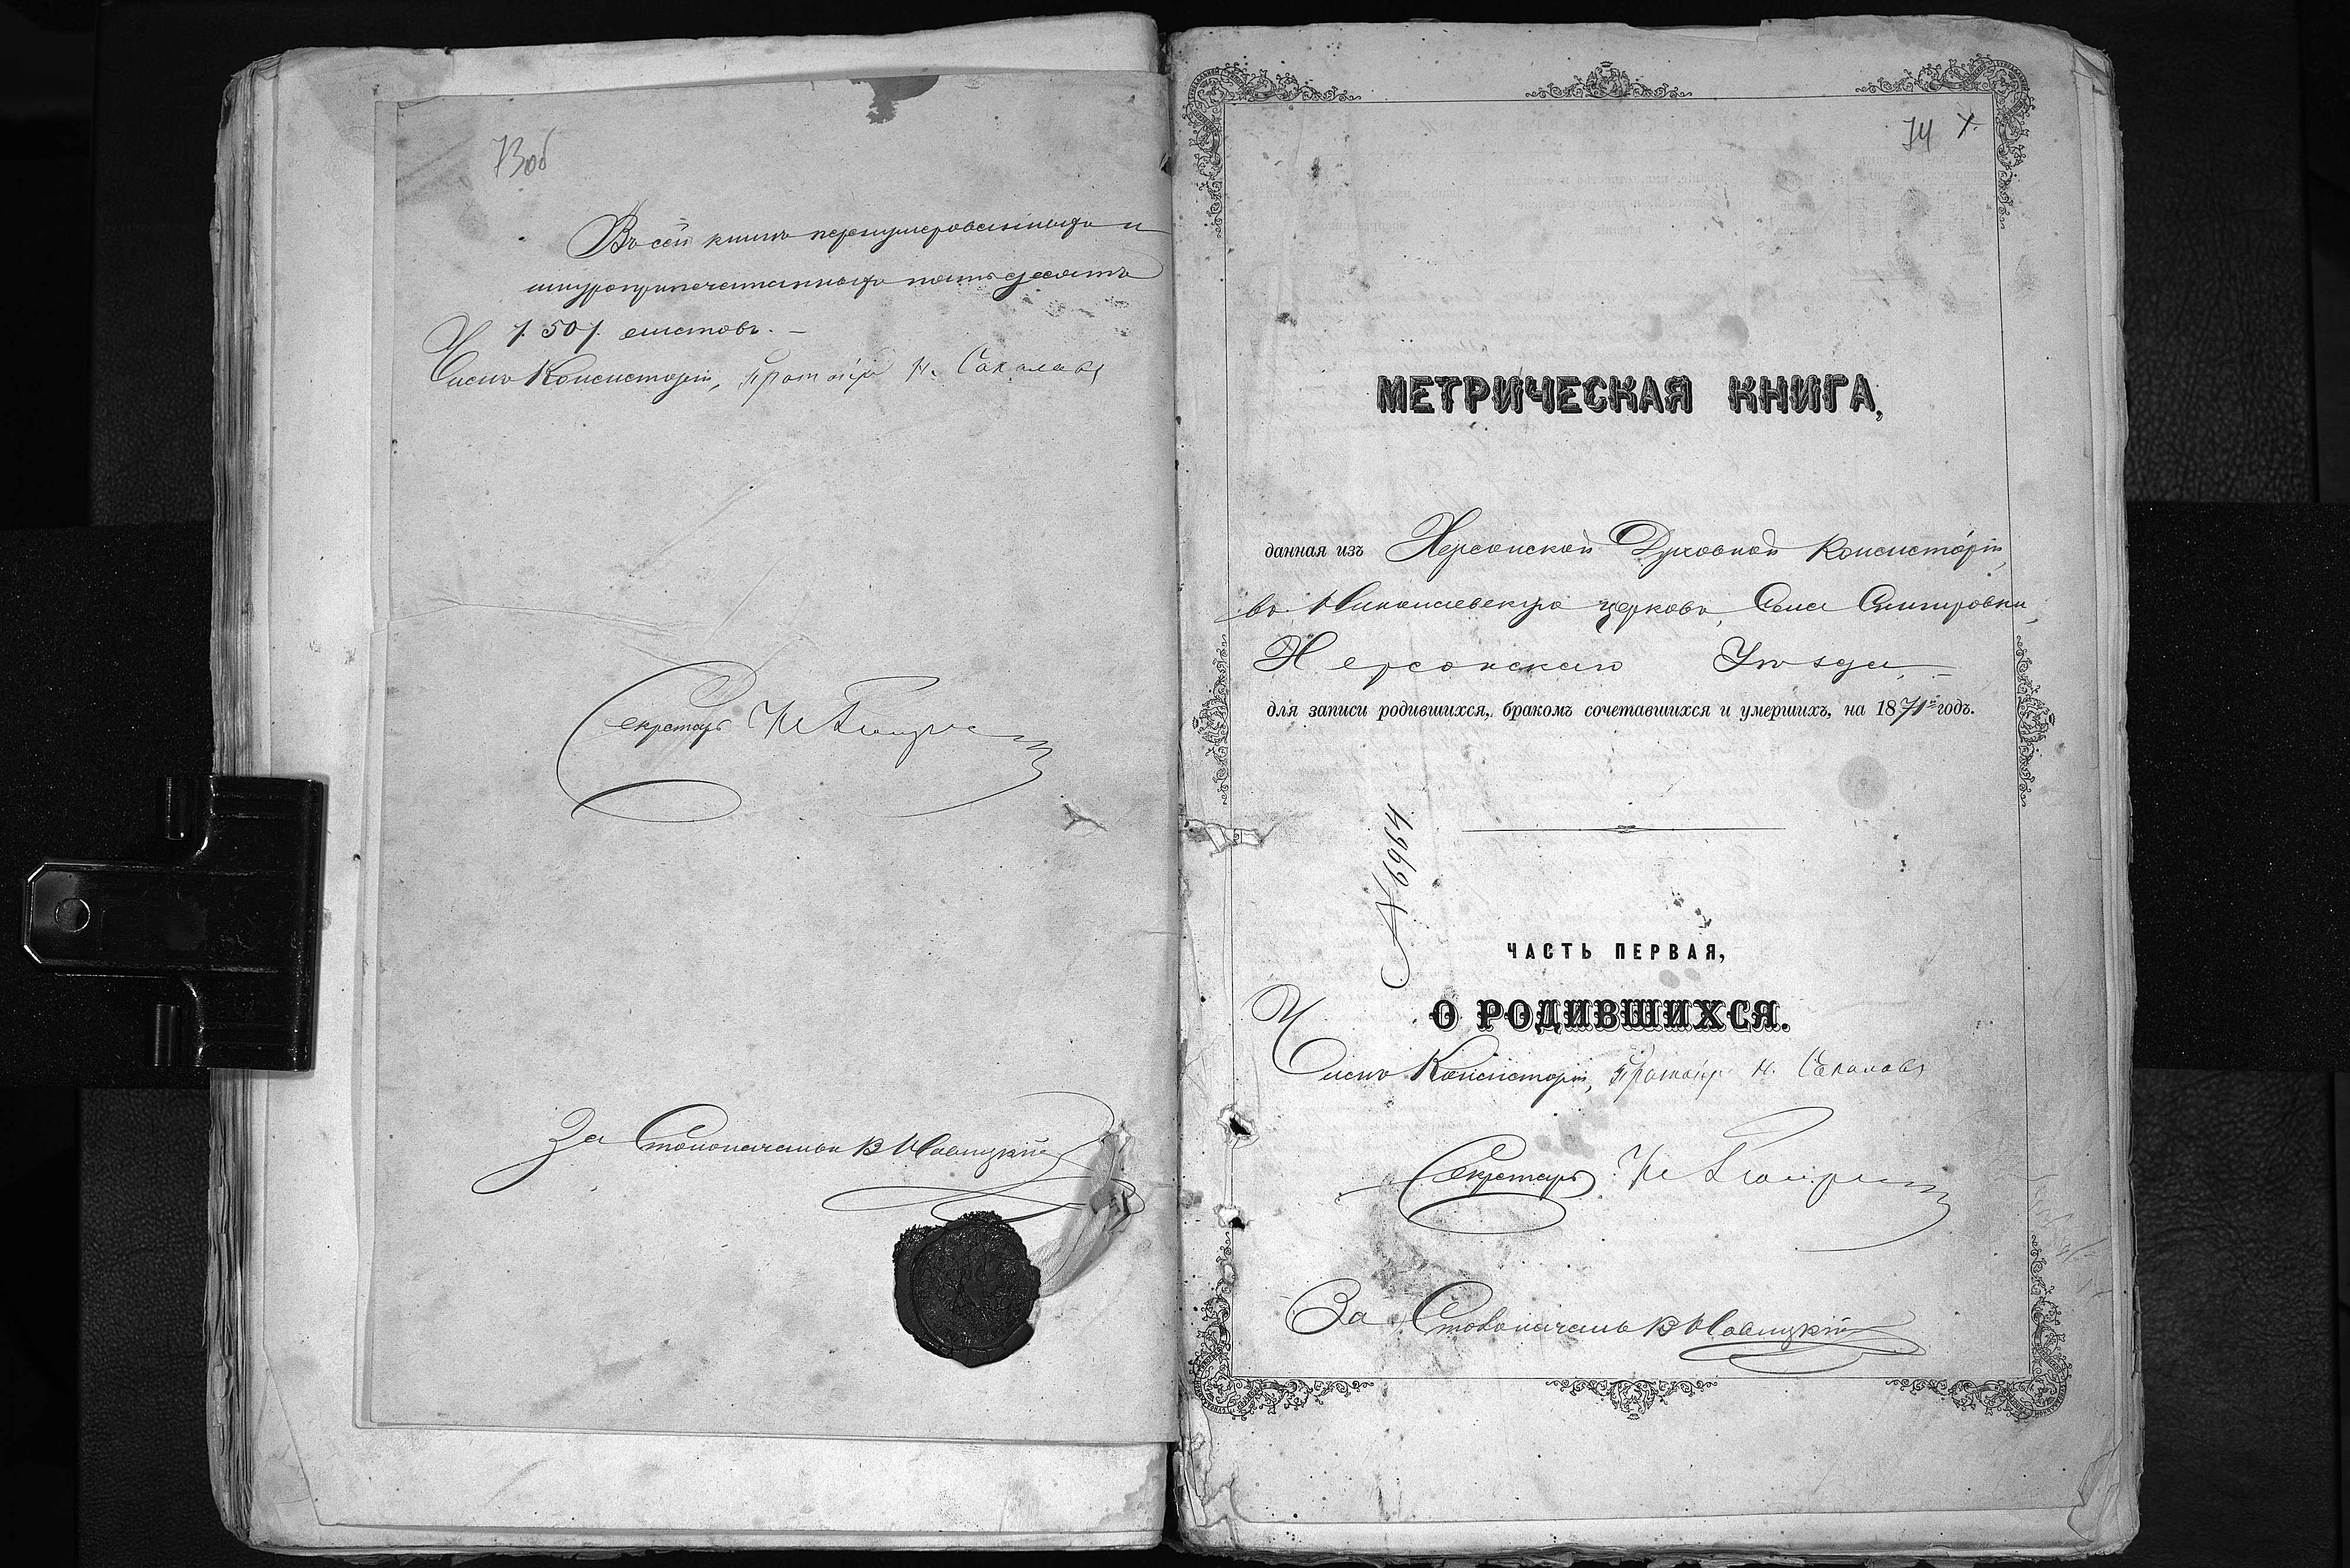 73об
Въ сей книгѣ перенумерованныхъ и
шнуроприпечатанныхъ пятьдесятъ
/.50/. листовъ. —
Членъ Консисторіи, Протоіер Н. Соколовъ
Секретарь
За Столоначальн В Новицкій
74
МЕТРИЧЕСКАЯ КНИГА,
данная изъ Херсонской Духовной Консисторіи,
въ Николаевскую церковь, Села Снигировки,
Херсонскаго Уѣзда,
для записи родившихся, бракомъ сочетавшихся и умершихъ, на 1871й годъ.
№ 6964
ЧАСТЬ ПЕРВАЯ,
О РОДИВШИХСЯ.
Членъ Консисторіи, Протоіер Н. Соколовъ
Секретарь
За Столоначаль В Новицкій